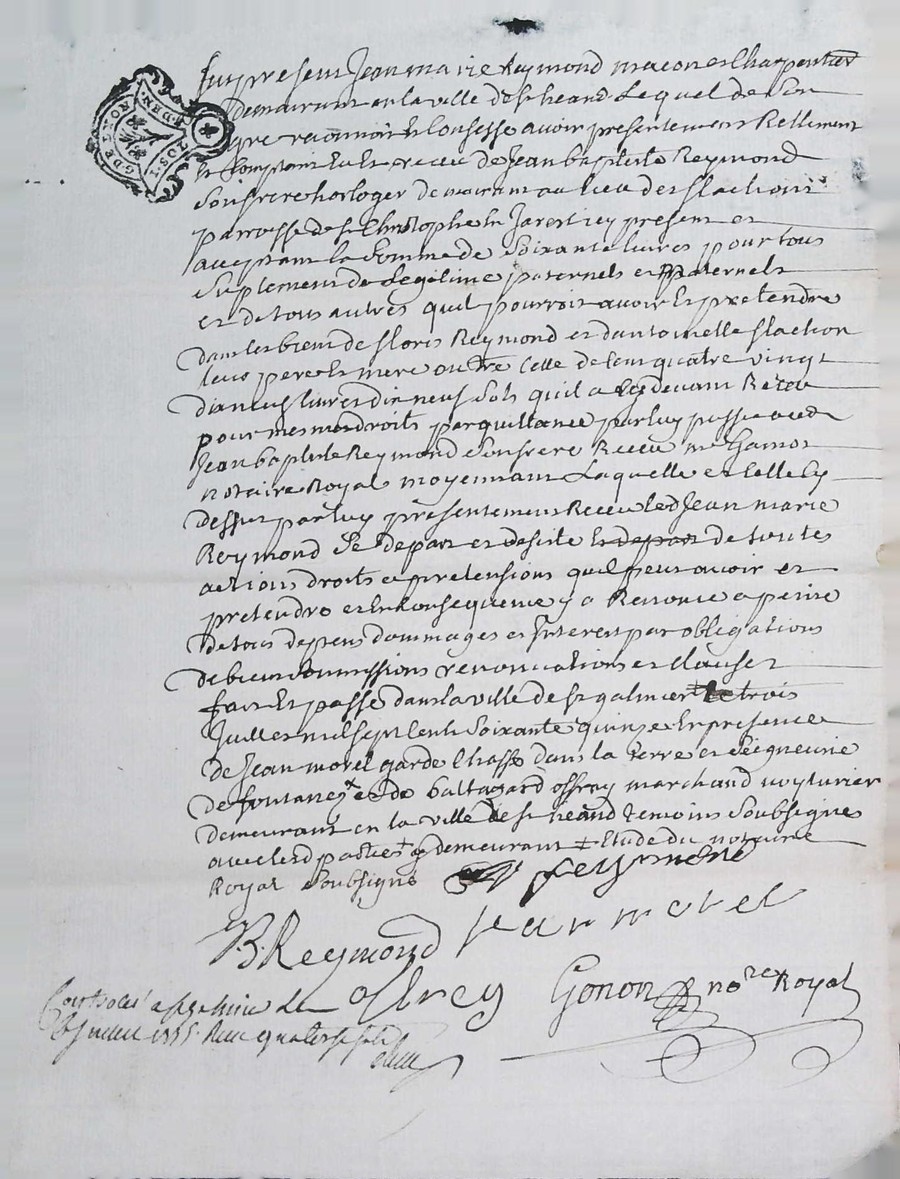 fut present Jean marie Reymond macon et Charpentier
demeurant en la ville de st heand Lequel de Son
gre reconnoit et Confesse avoir presentement Reellement
et Comptant Eu et receu de Jean baptiste Reymond
Son frere horloger demeurant au lieu des flachons
parroisse de st Christophe en Jarest icy present et
acceptant la Somme de Soixante livres pour tous
Suplement de Legitime paternels et maternels
et de tous autres quil pourroit avoir et pretendre
dans les biens de floris Reymond et dantoinette flachon
leurs pere et mere outre Celle de Cent quatre vingt
dix neuf livres dix neuf Sols quil a cy devant Receu
pour mesme droits par quittance par luy passe audt
Jean baptiste Reymond Son frere Receu me
notaire Royal moyennant Laquelle et Celle Cy
dessus par luy presentement Receu led Jean marie
Reymond Se depart et desiste et depart de toutes
actions droits et pretensions quil peut avoir et
pretendre et en Consequence y a Renonce a peine
de tous depens dommages et Interest par obligations
de biens Soumissions renonciations et Clauses
fait et passe dans la ville de st galmier le trois
Juillet mil sept Cents Soixante quinze En presence
de Jean morel garde Chasse dans la terre et Seigneurie
de fontanes et de baltazard offrey marchand voyturier
demeurant en la ville de st heand temoins Soubsignes
avec lesd parties demeurant ‡ Etude du notaire
Royal Soubsigne
reymond
J.B. Reymond Jean morel
offrey Gonon nore Royal